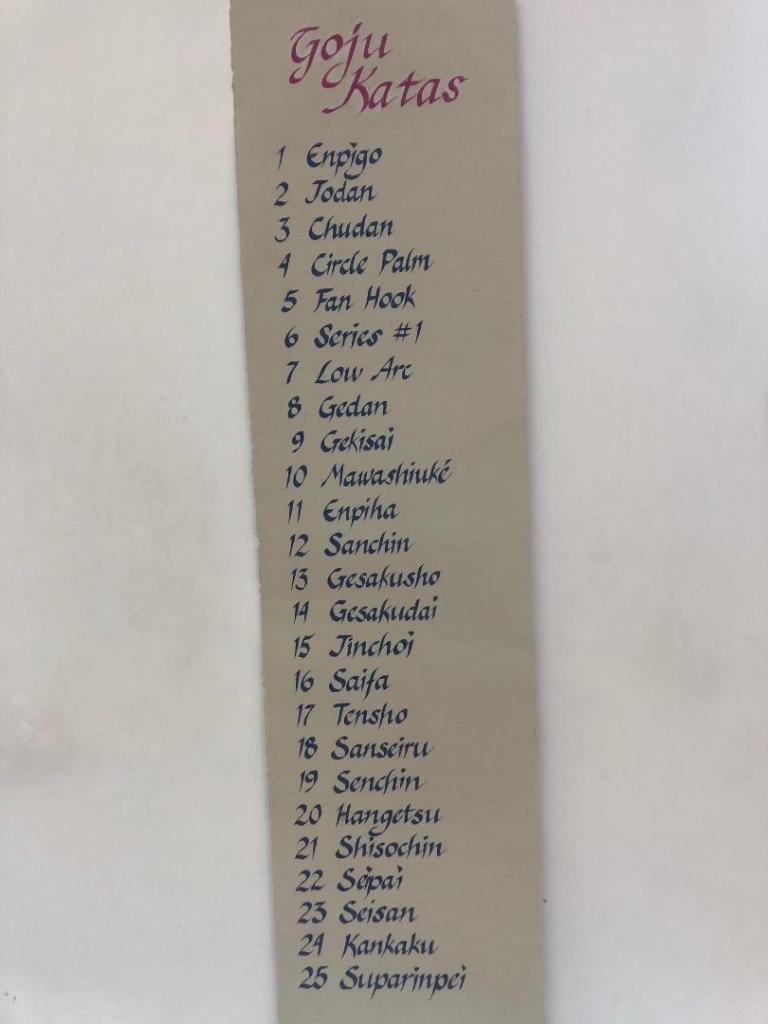 Goju
Katas
1 Enpigo
2 Jodan
3 Chudan
4 Circle Palm
5 Fan Hook
6 Series #1
7 Low Arc
8 Gedan
9 Gekisai
10 Mawashiuké
11 Enpiha
12 Sanchin
13 Gesakusho
14 Gesakudai
15 Jinchoi
16 Saifa
17 Tensho
18 Sanseiru
19 Senchin
20 Hangetsu
21 Shisochin
22 Seipai
23 Seisan
24 Kankaku
25 Suparinpei